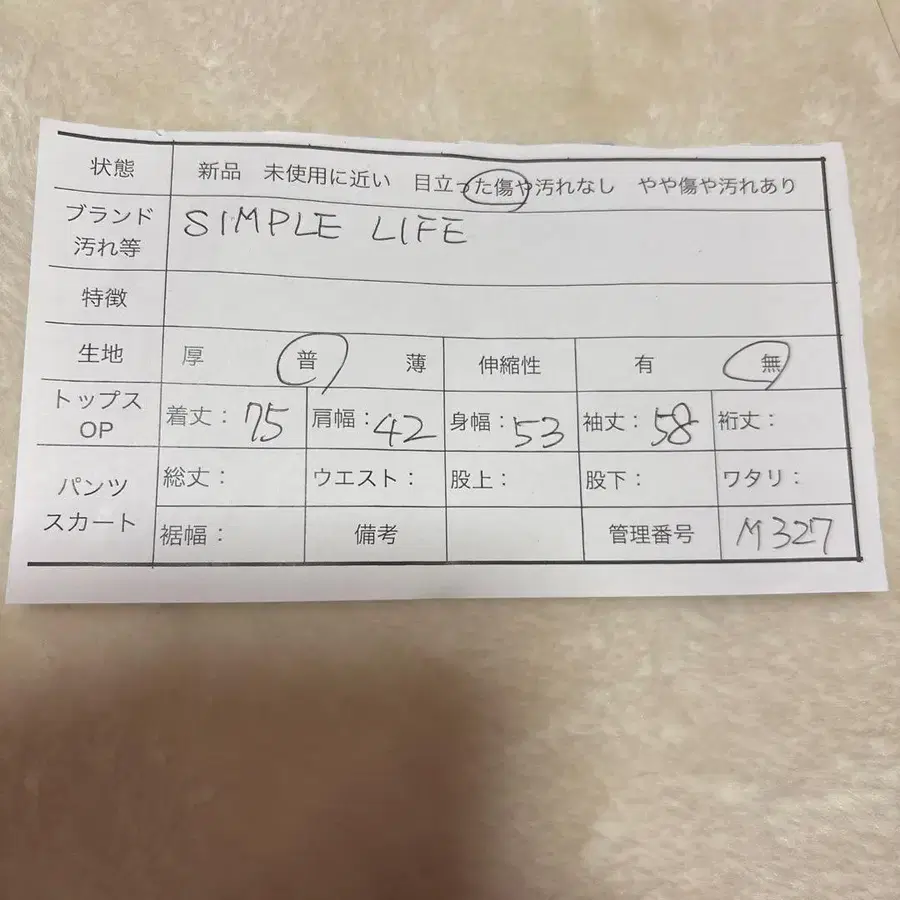 状態 新品 未使用に近い 目立った傷や汚れなし やや傷や汚れあり
ブランド
汚れ等
SIMPLE LIFE
特徴
生地 厚 普 薄 伸縮性 有 無
トップス
OP
着丈： 75 肩幅： 42 身幅： 53 袖丈： 58 裄丈：
パンツ
スカート
総丈： ウエスト： 股上： 股下： ワタリ：
裾幅： 備考 管理番号 M327